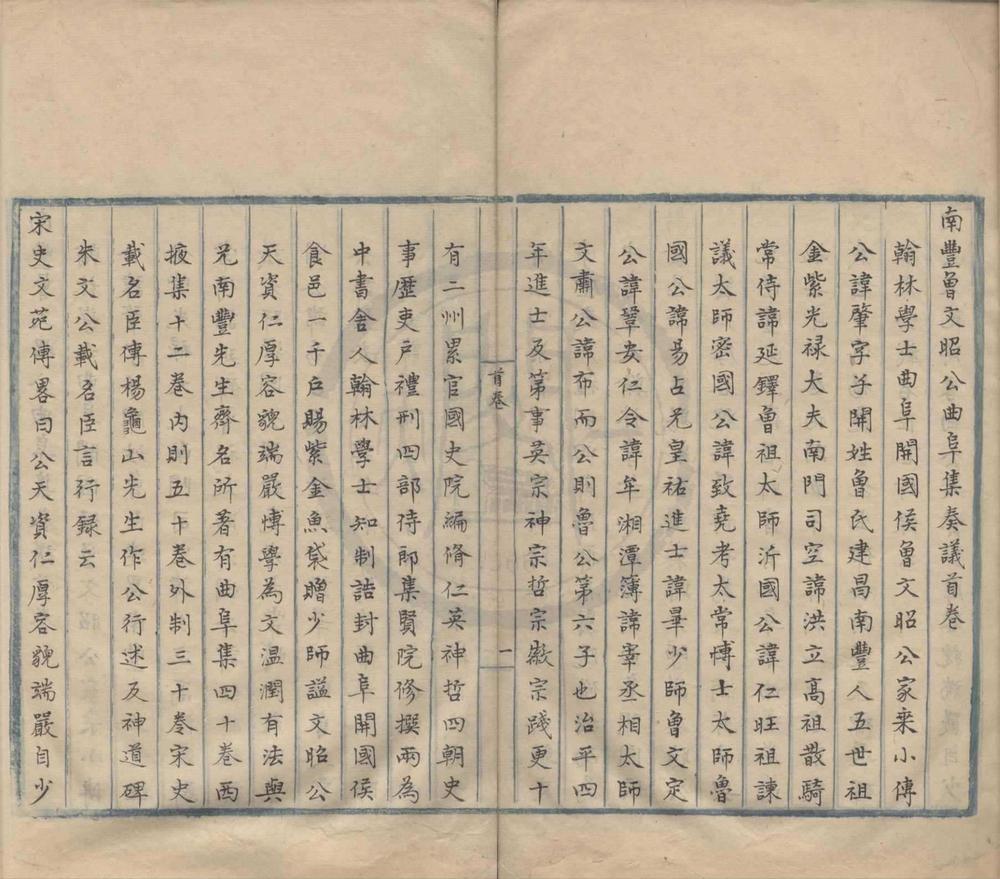 南豐曾文昭公曲阜集奏議首卷
翰林學士曲阜開國侯曾文昭公家乘小傳
公諱肇字子開姓曾氏建昌南豐人五世祖
金紫光禄大夫南門司空諱洪立高祖散騎
常侍諱延鐸曾祖太師沂國公諱仁旺祖諫
議太師密國公諱致堯考太常博士太師魯
國公諱易占兄皇祐進士諱曅少師魯文定
公諱鞏安仁令諱牟湘潭簿諱宰丞相太師
文肅公諱布而公則魯公第六子也治平四
年進士及第事英宗神宗哲宗徽宗踐更十
首卷
一
有二州累官國史院編脩仁英神哲四朝史
事歷吏户禮刑四部侍郎集賢院修撰兩為
中書舍人翰林學士知制誥封曲阜開國侯
食邑一千户賜紫金魚袋贈少師謚文昭公
天資仁厚容貌端嚴博學為文溫潤有法與
兄南豐先生齊名所著有曲阜集四十卷西
掖集十二卷内則五十卷外制三十卷宋史
載名臣傳楊龜山先生作公行述及神道碑
朱文公載名臣言行録云
宋史文苑傳畧曰公天資仁厚容貌端嚴自少